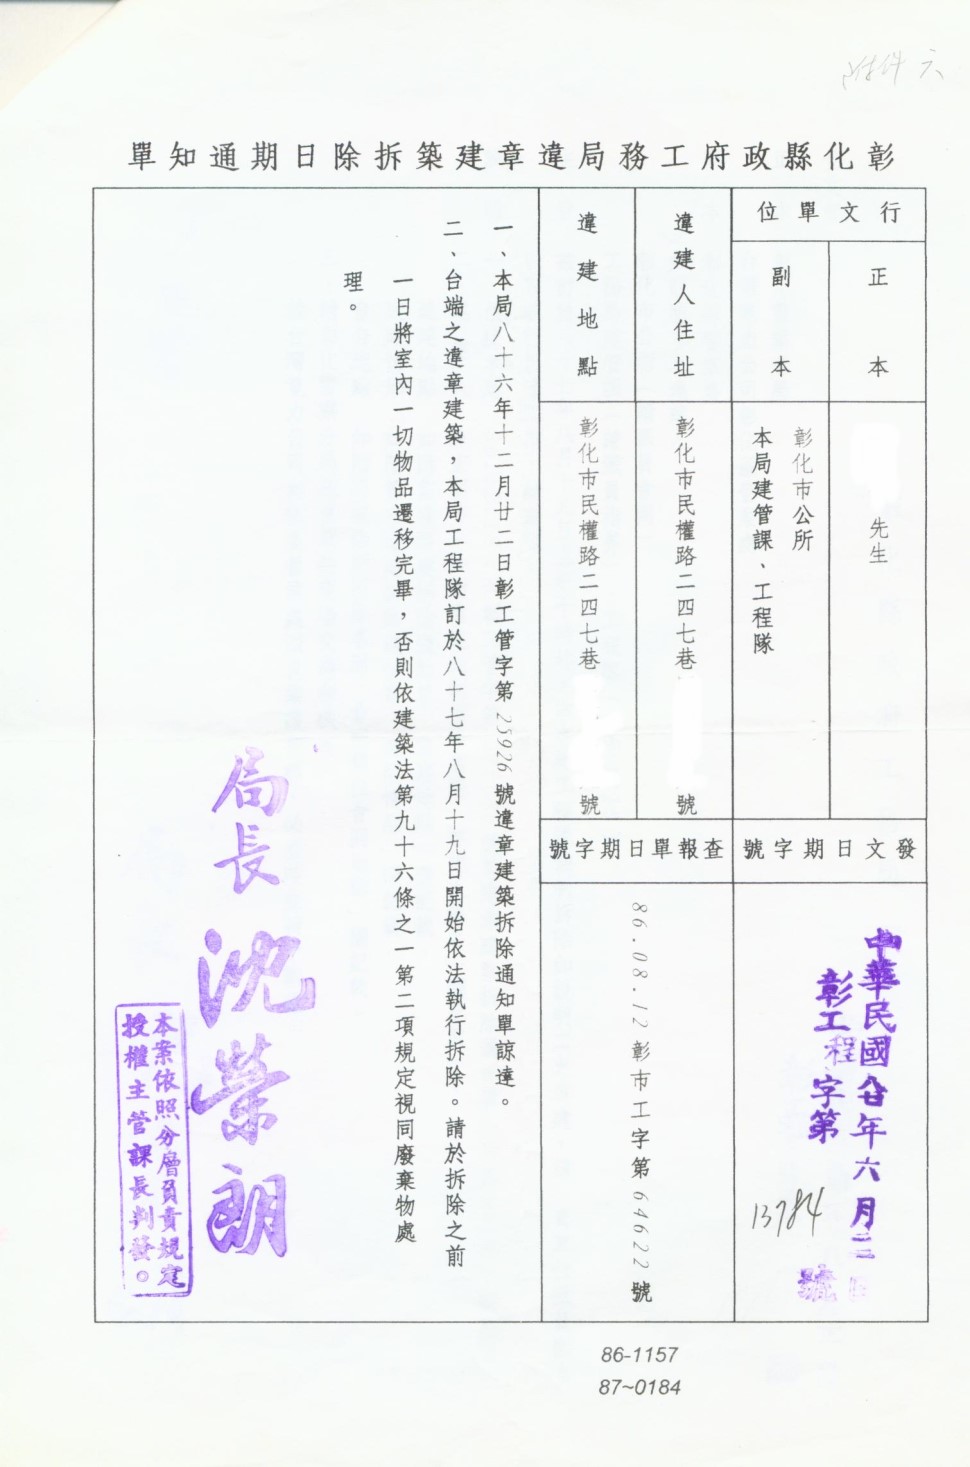 附件六
彰化縣政府工務局違章建築拆除日期通知單
行文單位
正本
先生
副本
彰化市公所
本局建管課、工程隊
發文日期字號
中華民國
年六月
彰工程字第
13784
號
違建人住址
彰化市民權路二四七巷
號
違建地點
彰化市民權路二四七巷
號
查報單日期字號
86.08.12彰市工字第64622號
一、本局八十六年十二月廿二日彰工管字第25926號違章建築拆除通知單諒達。
二、台端之違章建築，本局工程隊訂於八十七年八月十九日開始依法執行拆除。請於拆除之前
一日將室內一切物品遷移完畢，否則依建築法第九十六條之一第二項規定視同廢棄物處
理。
局長 沈榮朗
本案依照分層負責規定
授權主管課長判發。
86-1157
87~0184